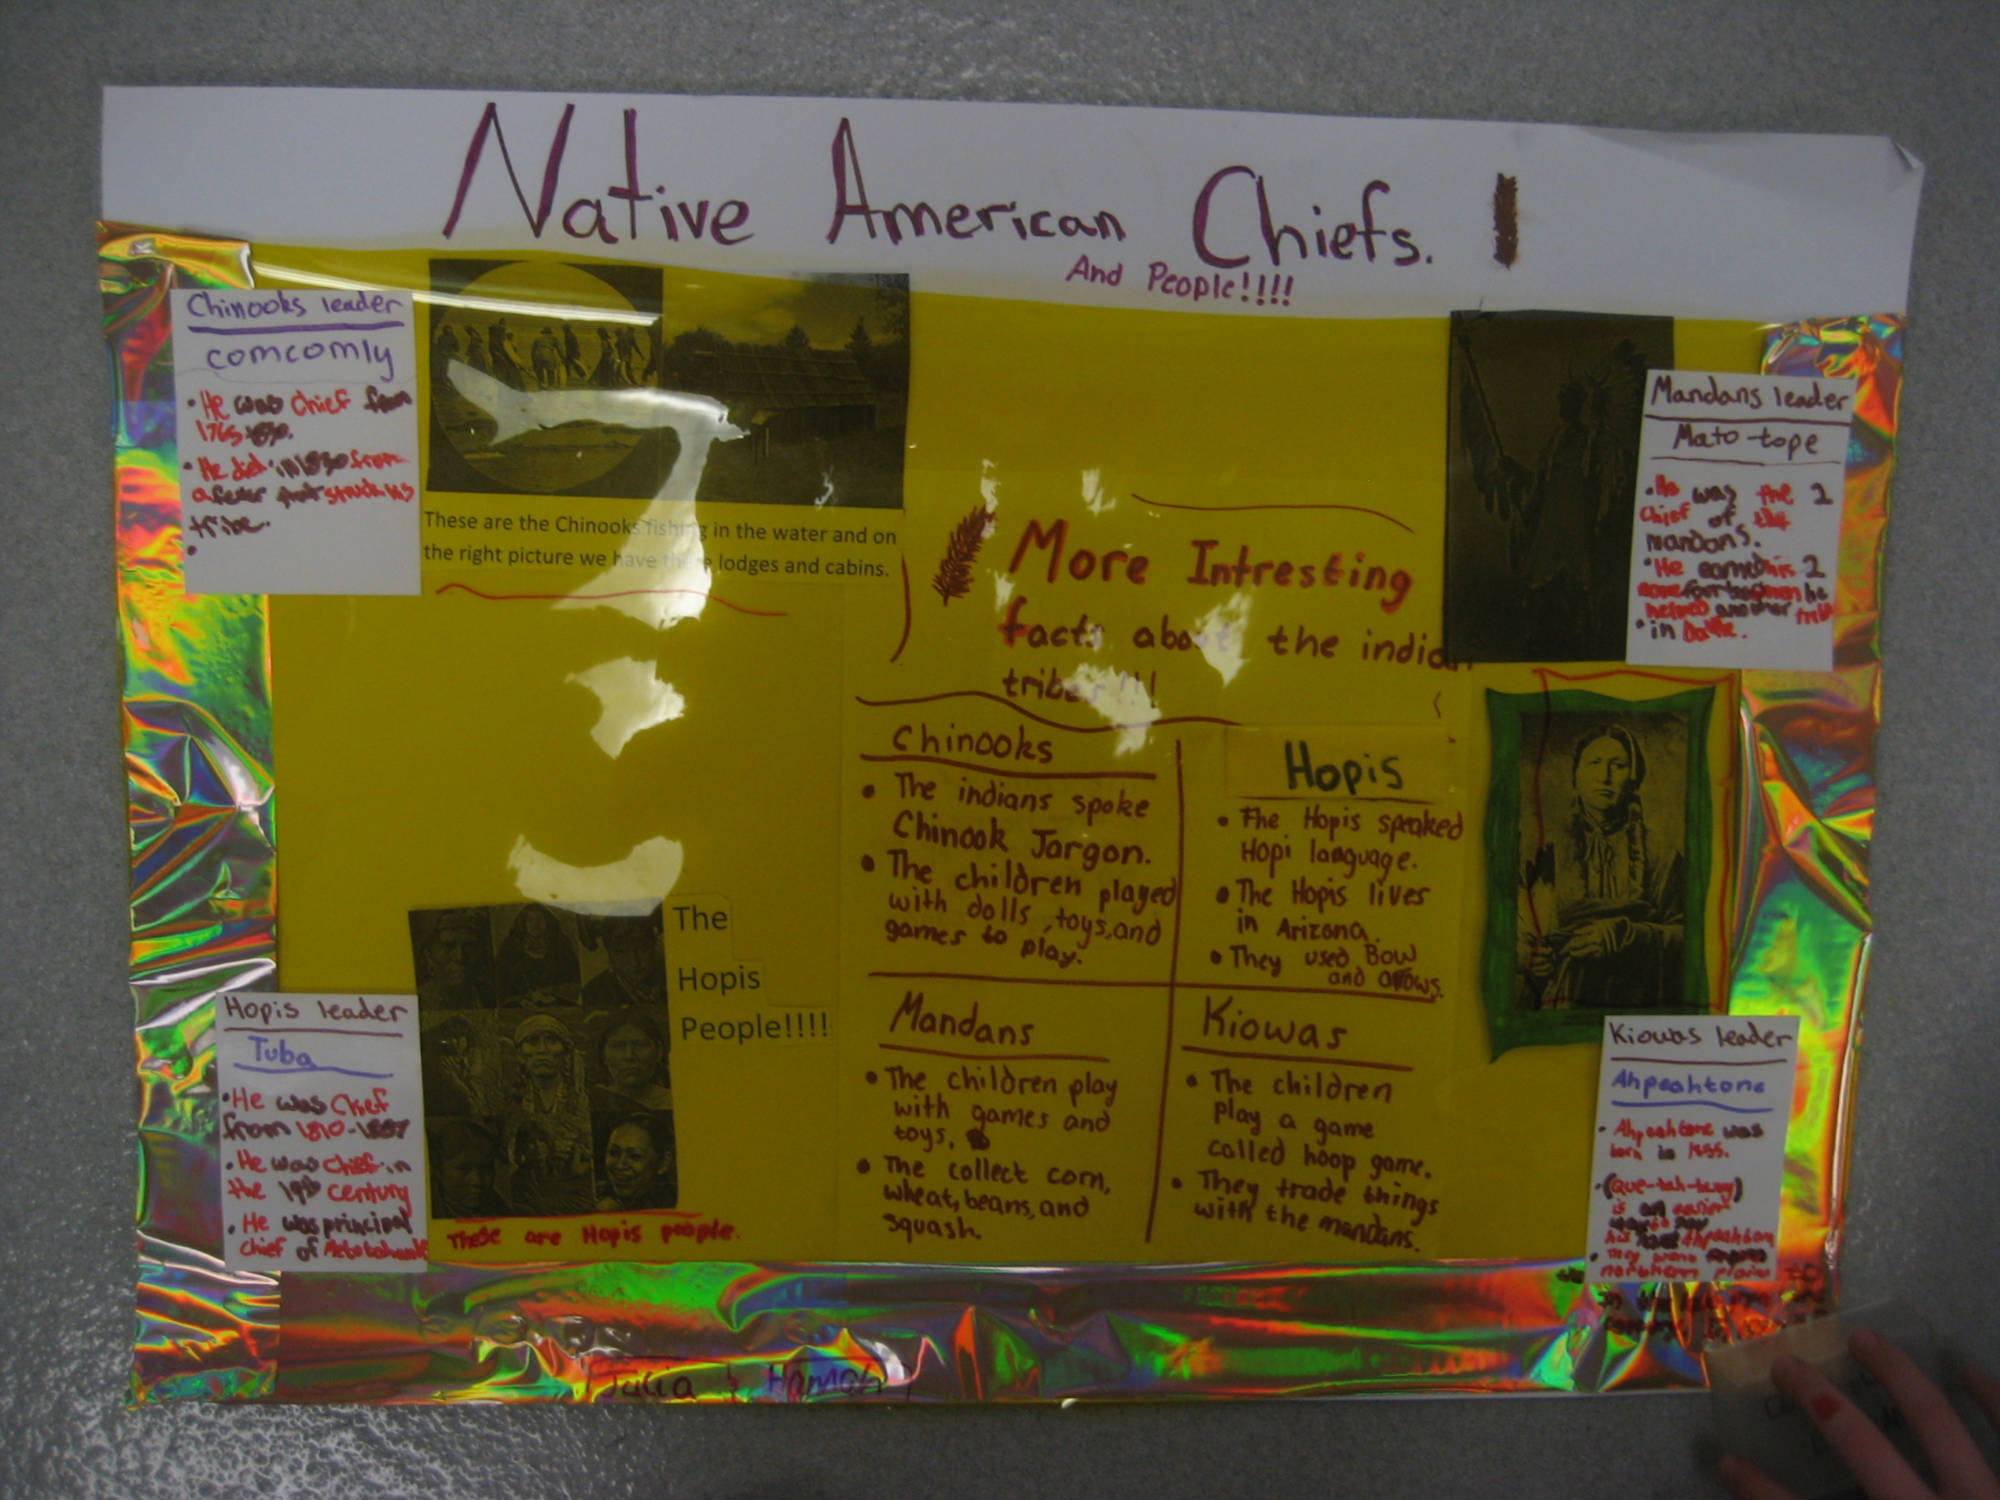 Native American Chiefs.
And People!!!!
Chinooks leader
comcomly
• He was chief from
1765
• He did in 1830 from
a fever that struck his
tribe.
•
These are the Chinooks fishing in the water and on
the right picture we have there lodges and cabins.
Mandans leader
Mato-tope
• He was the 2
chief of the
mandans.
• He earned his 2
helped another tribe
• in batle.
More Intresting
facts about the indian
tribes!!!
Chinooks
• The indians spoke
Chinook Jargon.
• The children played
with dolls, toys, and
games to play.
Hopis
• The Hopis speaked
Hopi language.
• The Hopis lives
in Arizona.
• They used Bow
and arrows.
Mandans
• The children play
with games and
toys,
• The collect corn,
wheat, beans, and
squash.
Kiowas
• The children
play a game
called hoop game.
• They trade things
with the mandans.
The
Hopis
People!!!!
These are Hopis people.
Hopis leader
Tuba
• He was Chief
from 1810-1887
• He was chief in
the 19th century
• He was principal
chief of
Kiowas leader
Ahpeahtone
• Ahpeahtone was
born in 1855.
• (Que-tah-tung)
is an easier
way to say
his Ahpeahtone
• They were
northern plains
in the
Julia & Hannah